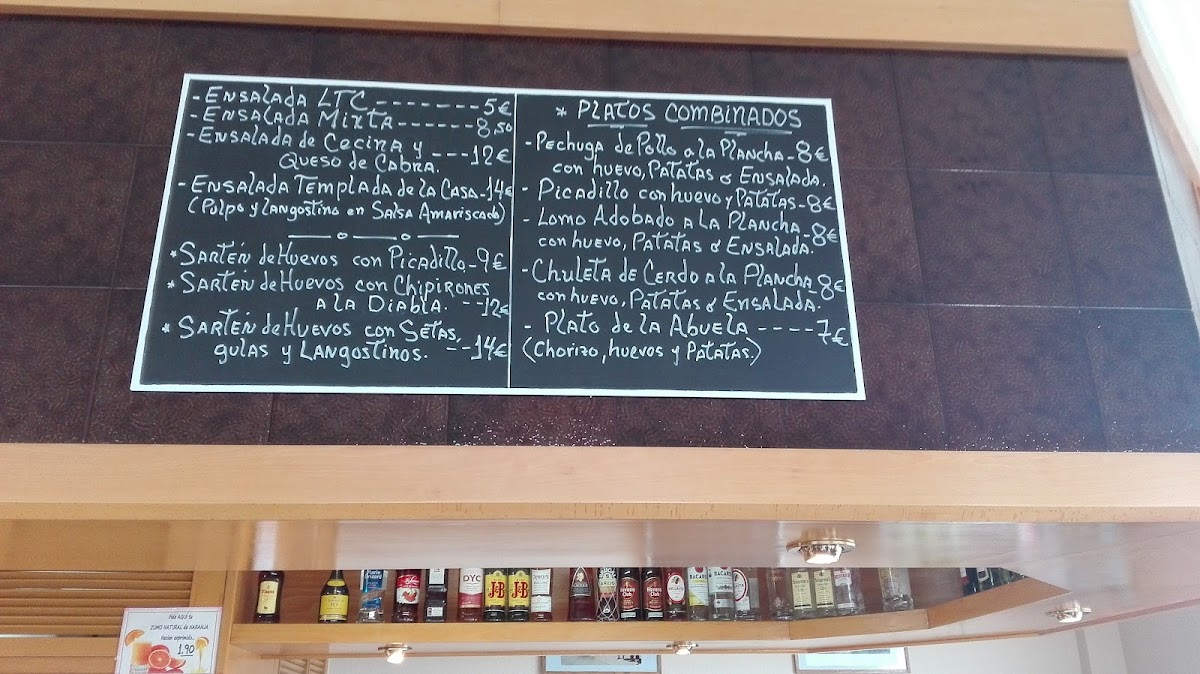 - ENSALADA LTC ------- 5€
- ENSALADA MIXTA ------ 8,50
- ENSALADA de CECINA y
QUESO de CABRA. --- 12€
- ENSALADA TEMPLADA de LA CASA - 14€
(Pulpo y LANGOSTINO en SALSA AMARISCADA)
* SARTÉN de HUEVOS con PICADILLO - 9€
* SARTÉN de HUEVOS con CHIPIRONES
A LA DIABLA. -- 12€
* SARTÉN de HUEVOS con SETAS,
gulas y LANGOSTINOS. -- 14€
* PLATOS COMBINADOS
- PECHUGA de POLLO a la PLANCHA - 8€
con huevo, PATATAS o ENSALADA.
- PICADILLO con huevo y PATATAS - 8€
- LOMO ADOBADO A LA PLANCHA - 8€
con huevo, PATATAS o ENSALADA.
- CHULETA DE CERDO A la PLANCHA 8€
con huevo, PATATAS o ENSALADA.
- PLATO DE LA ABUELA ---- 7€
(Chorizo, huevos y PATATAS.)
DYC
J&B
J&B
Havana Club
BACARDI
BACARDI
Pide AQUÍ tu
ZUMO NATURAL de NARANJA
Recien exprimido..
1,90